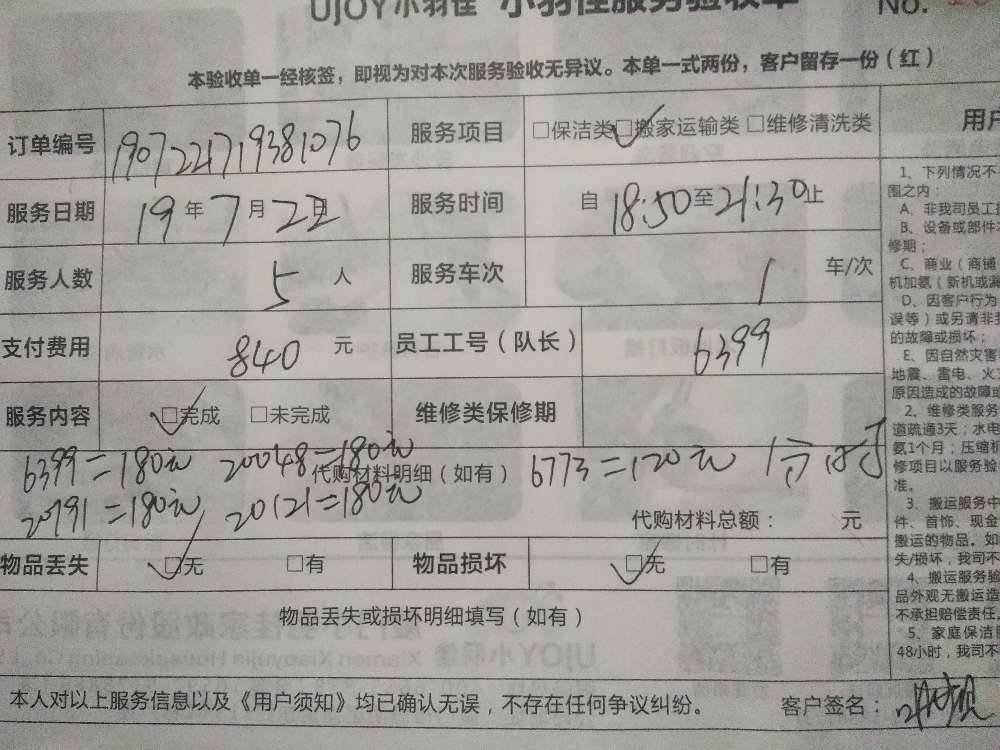 UJOY小羽佳 小羽佳服务验收单 No.
本验收单一经核签，即视为对本次服务验收无异议。本单一式两份，客户留存一份（红）
订单编号 1907221719381076 服务项目 □保洁类 □搬家运输类 □维修清洗类
服务日期 19年7月22日 服务时间 自18:50至21:30止
服务人数 5人 服务车次 1车/次
支付费用 840元 员工工号（队长） 6399
服务内容 □完成 □未完成 维修类保修期
6399=180元 20048=180元 6773=120元
代购材料明细（如有）
20791=180元 20121=180元
代购材料总额： 元
物品丢失 □无 □有 物品损坏 □无 □有
物品丢失或损坏明细填写（如有）
本人对以上服务信息以及《用户须知》均已确认无误，不存在任何争议纠纷。 客户签名：
用户
1、下列情况不
围之内：
A、非我司员工
B、设备或部件
修期；
C、商业（商铺
机加氨（新机或漏
D、因客户行为
误等）或另请非
的故障或损坏；
E、因自然灾害
地震、雷电、火
原因造成的故障或
2、维修类服务
道疏通3天；水电
氨1个月；压缩机
修项目以服务验
准。
3、搬运服务中
件、首饰、现金
搬运的物品。如
失/损坏，我司不
4、搬运服务验
品外观无搬运造
不承担赔偿责任
5、家庭保洁
48小时，我司不